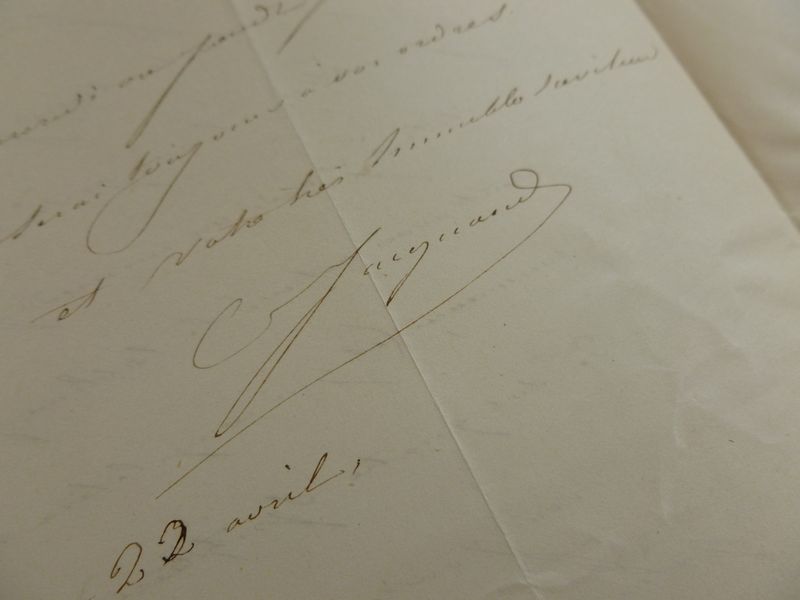 serai toujours à vos ordres.
et votre très humble serviteur
Jacquand
22 avril,